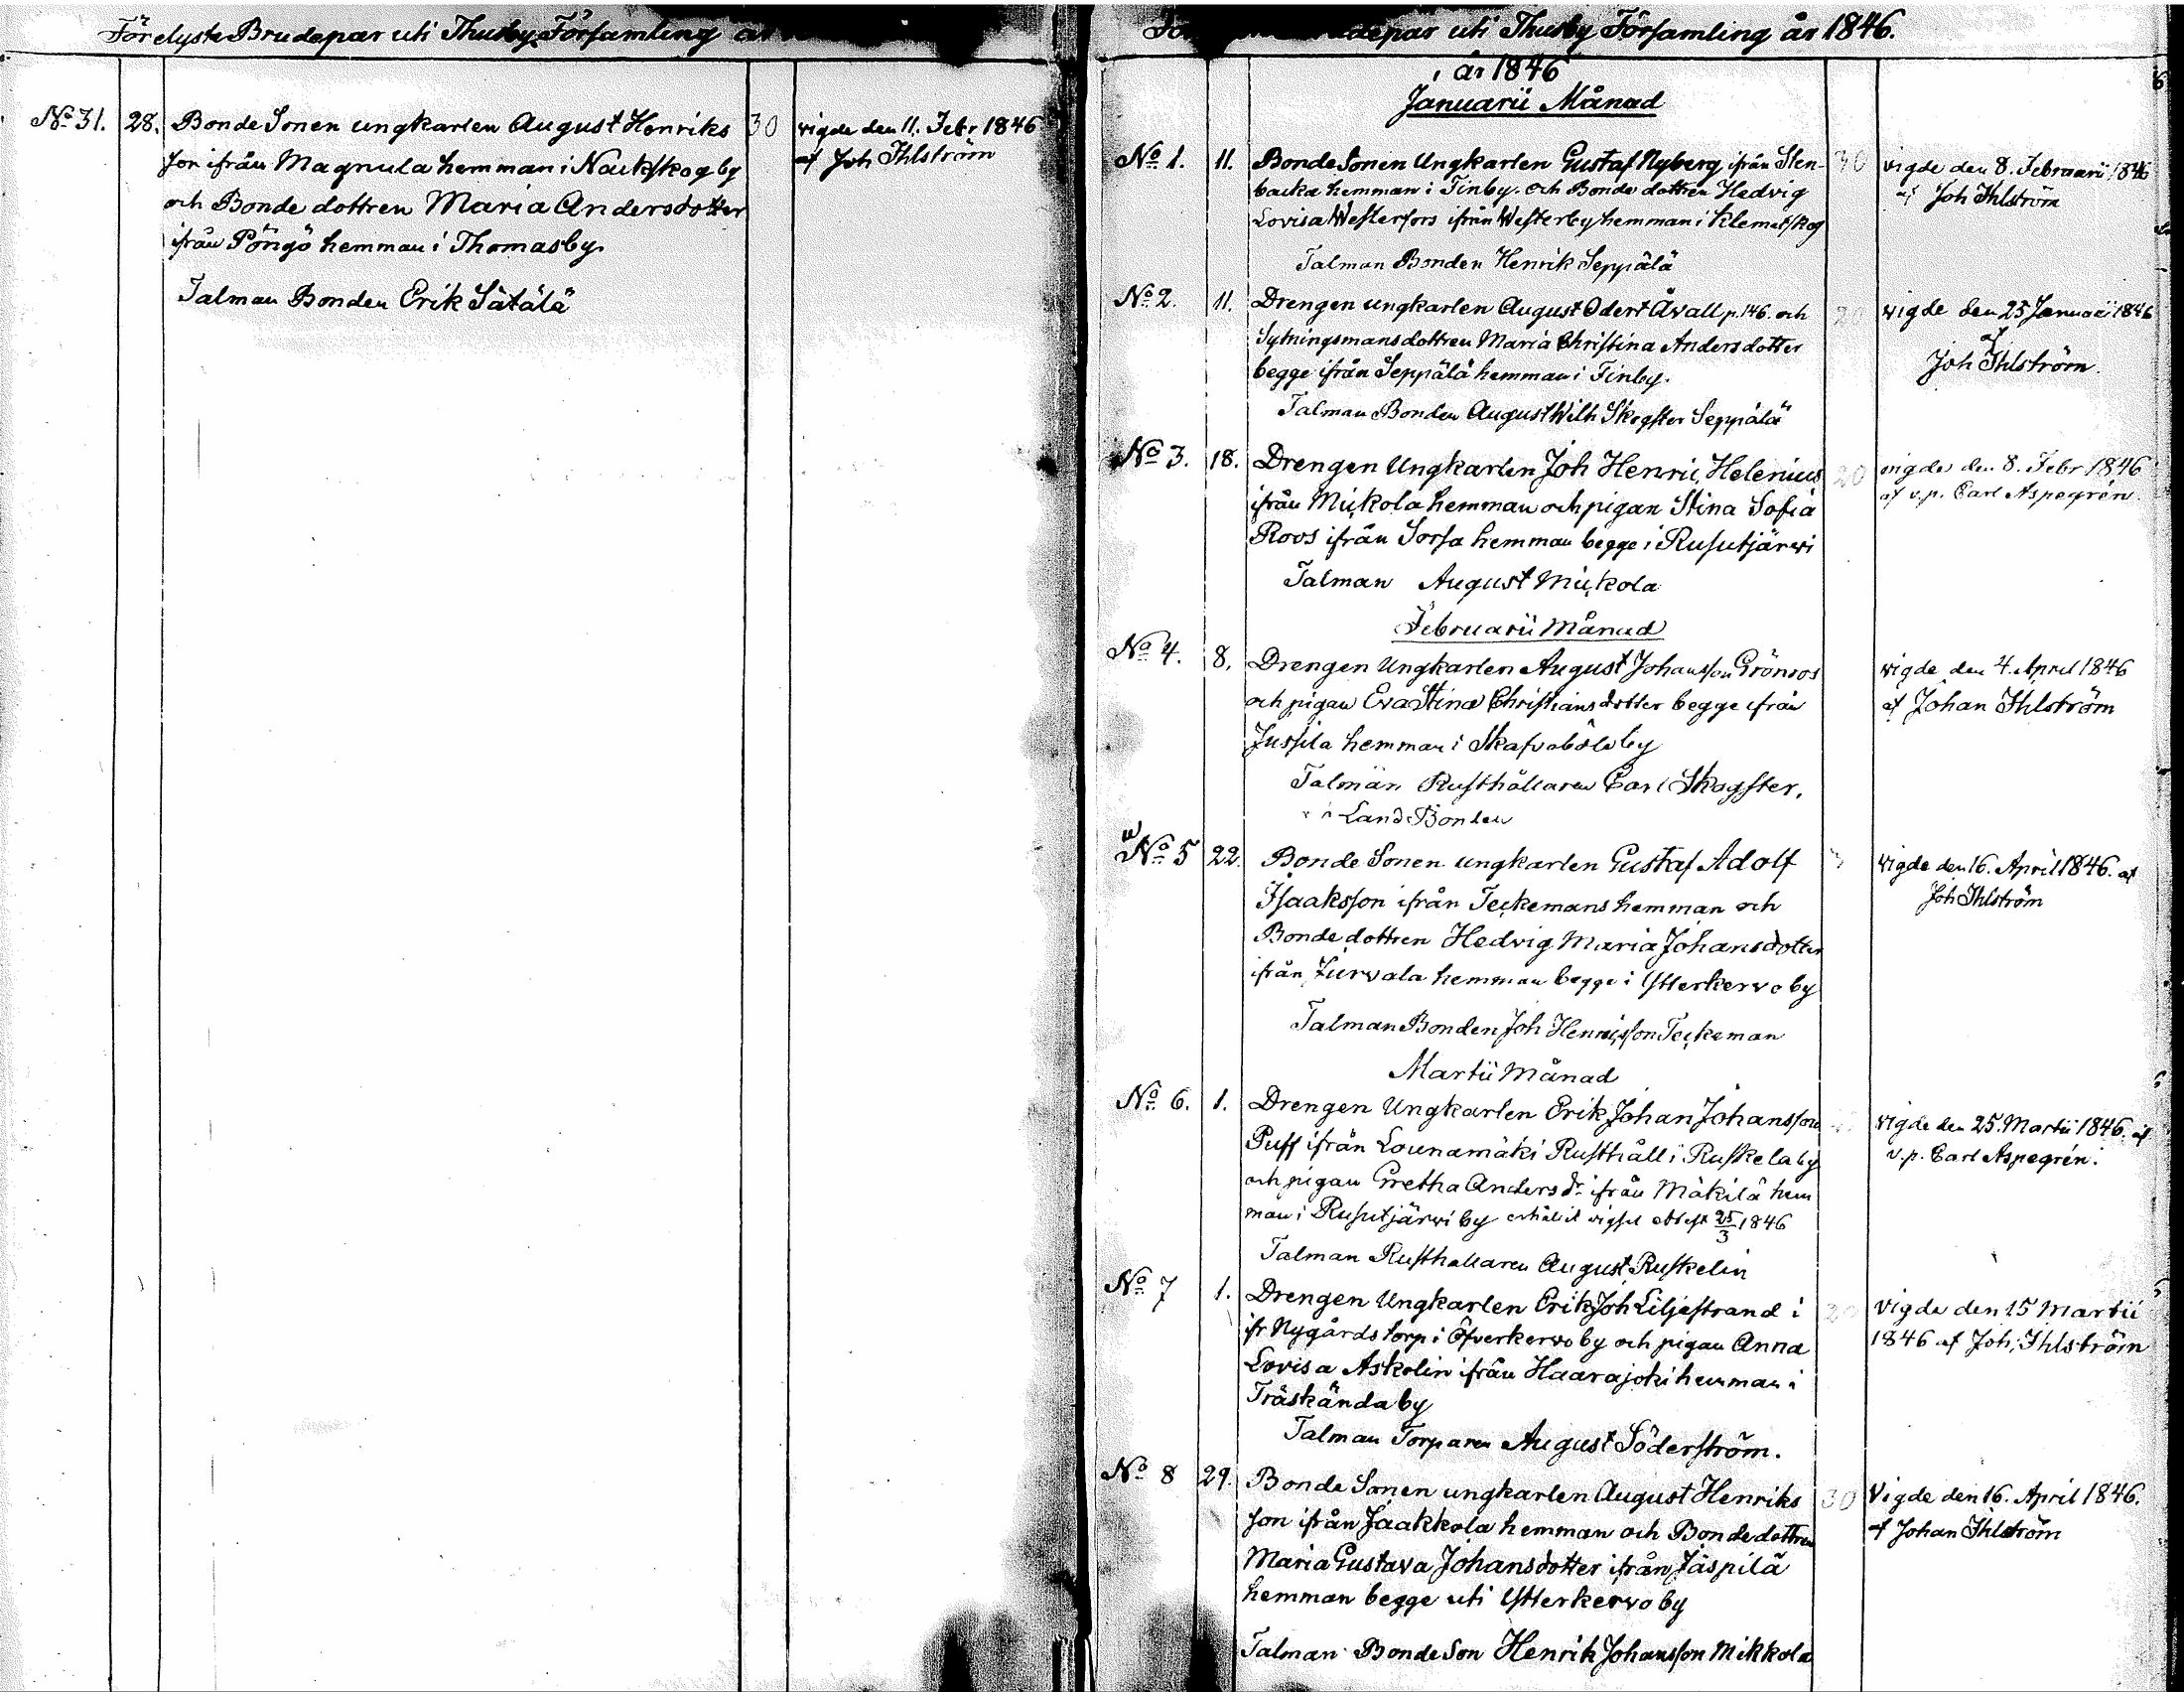 Förelyste Brudepar uti Thusby Församling år
No 31. 28. Bonde Sonen ungkarlen August Henriks 30 vigde den 11. Febr 1846
son ifrån Magnula hemman i Nackskog by af Joh Ihlström
och Bonde dottren Maria Andersdotter
ifrån Pöngö hemman i Thomasby.
Talman Bonden Erik Sätälä
uti Thusby Församling år 1846.
år 1846
Januarii Månad
No 1. 11. Bonde Sonen Ungkarlen Gustaf Nyberg ifrån Sten- 30 vigde den 8. Februarii 1846
backa hemman i Finby. och Bonde dottren Hedvig af Joh Ihlström
Lovisa Westerfors ifrån Westerby hemman i Klemetskog
Talman Bonden Henrik Seppälä
No 2. 11. Drengen ungkarlen August Odert Åvall p. 146. och 20 vigde den 25 Januarii 1846
Sytningsmansdottren Maria Christina Andersdotter af
begge ifrån Seppälä hemman i Finby. Joh Ihlström.
Talman Bonden August Wilh Skogster Seppälä
No 3. 18. Drengen Ungkarlen Joh Henric Helenius 20 vigde den 8. Febr 1846
ifrån Mickola hemman och pigan Stina Sofia af v.p. Carl Aspegrén.
Roos ifrån Sorsa hemman begge i Rusutjärwi
Talman August Mickola
Februarii Månad
No 4. 8. Drengen Ungkarlen August Johansson Grönroos vigde den 4. April 1846
och pigan Eva Stina Christiansdotter begge ifrån af Johan Ihlström
Jussila hemman i Skafvaböle by
Talman Rusthållaren Carl Skogster.
Land Bonden
No 5 22. Bonde Sonen ungkarlen Gustaf Adolf vigde den 16. April 1846. af
Isaaksson ifrån Teckemans hemman och Joh Ihlström
Bonde dottren Hedvig Maria Johansdotter
ifrån Jurvala hemman begge i Ytterkervo by
Talman Bonden Joh Henricsson Teckeman
Martii Månad
No 6. 1. Drengen Ungkarlen Erik Johan Johansson vigde den 25. Martii 1846. af
Puff ifrån Lounamäki Rusthåll i Ruskela by v.p. Carl Aspegrén.
och pigan Gretha Anders dr ifrån Mäkilä hem
man i Rusutjärwi by erhållit vigsel attest 25/3 1846
Talman Rusthållaren August Ruskelin
No 7 1. Drengen Ungkarlen Erik Joh Liljestrand i 20 Vigde den 15 Martii
ifr Nygårds torp i Öfverkervo by och pigan Anna 1846 af Joh; Ihlström
Lovisa Askolin ifrån Haarajoki hemman i
Träskända by
Talman Torparen August Söderström.
No 8 29. Bonde Sonen ungkarlen August Henriks 30 Vigde den 16. April 1846.
son ifrån Jaakkola hemman och Bonde dottren af Johan Ihlström
Maria Gustava Johansdotter ifrån Jäspilä
hemman begge uti Ytterkervo by
Talman Bonde Son Henrik Johansson Mikkola